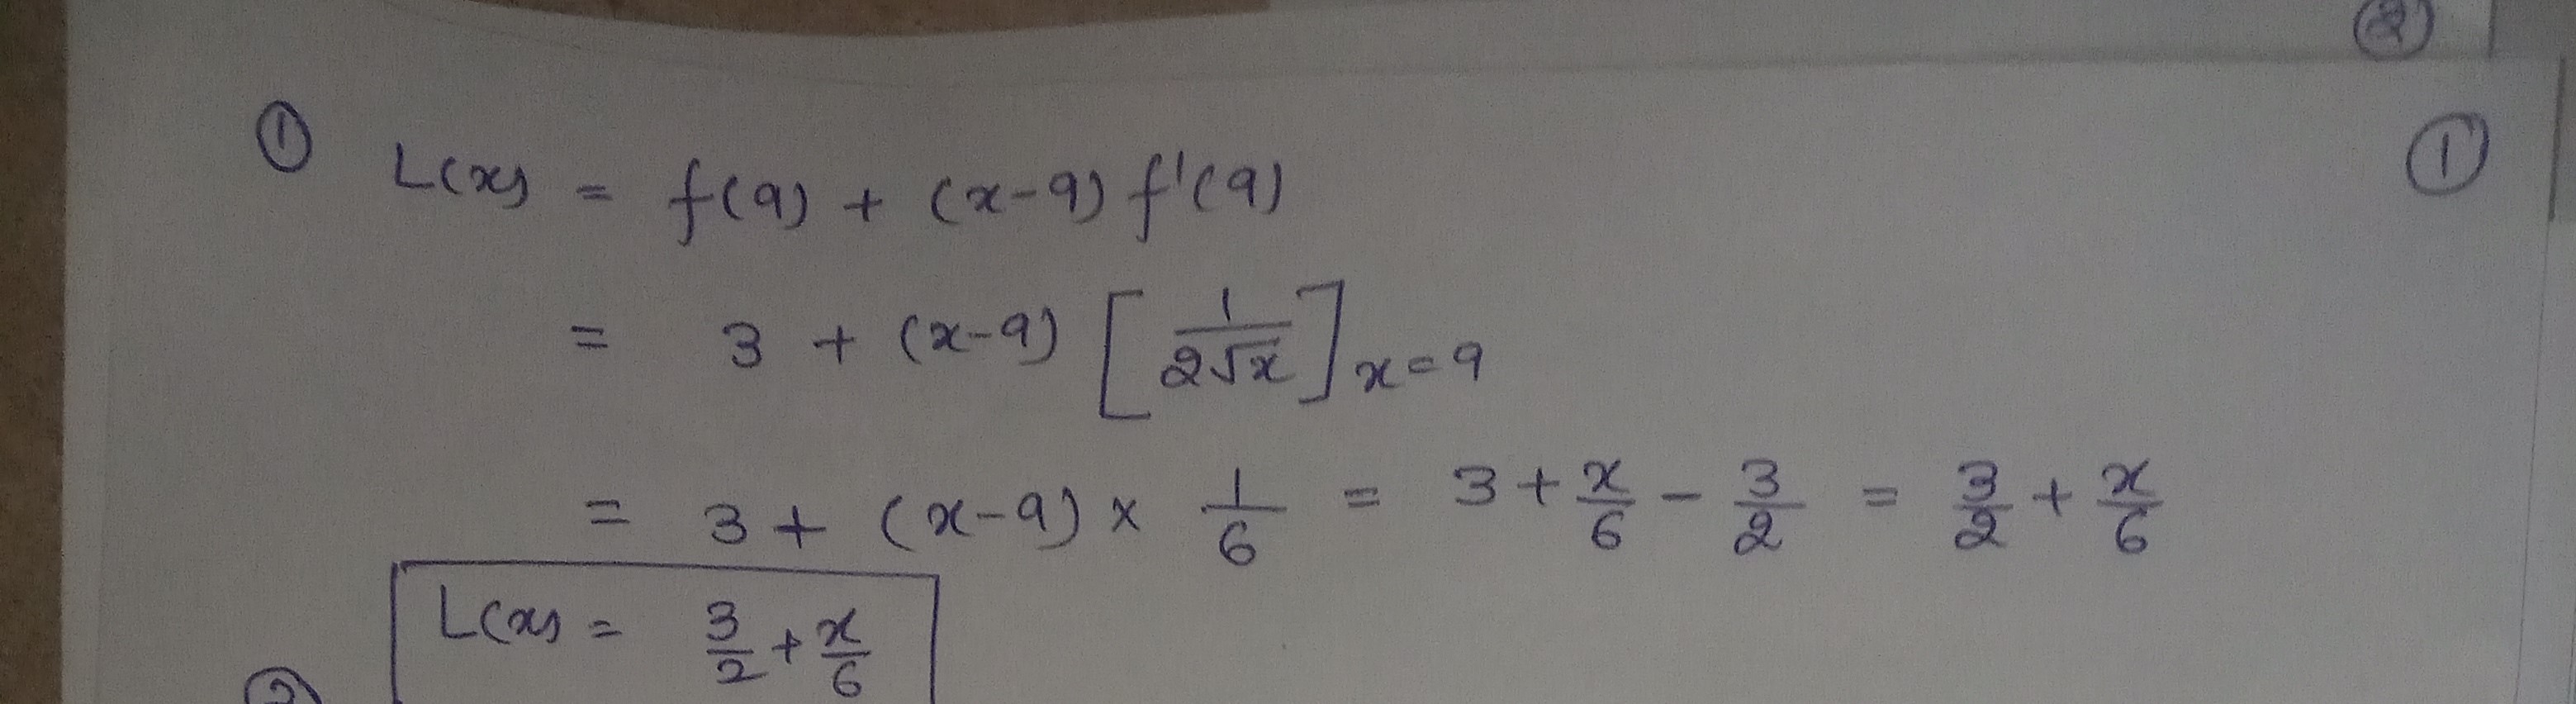 ②
① ①
L(x) = f(9) + (x-9) f'(9)
= 3 + (x-9) [1/(2√x)] x=9
= 3 + (x-9) × 1/6 = 3 + x/6 - 3/2 = 3/2 + x/6
L(x) = 3/2 + x/6
②